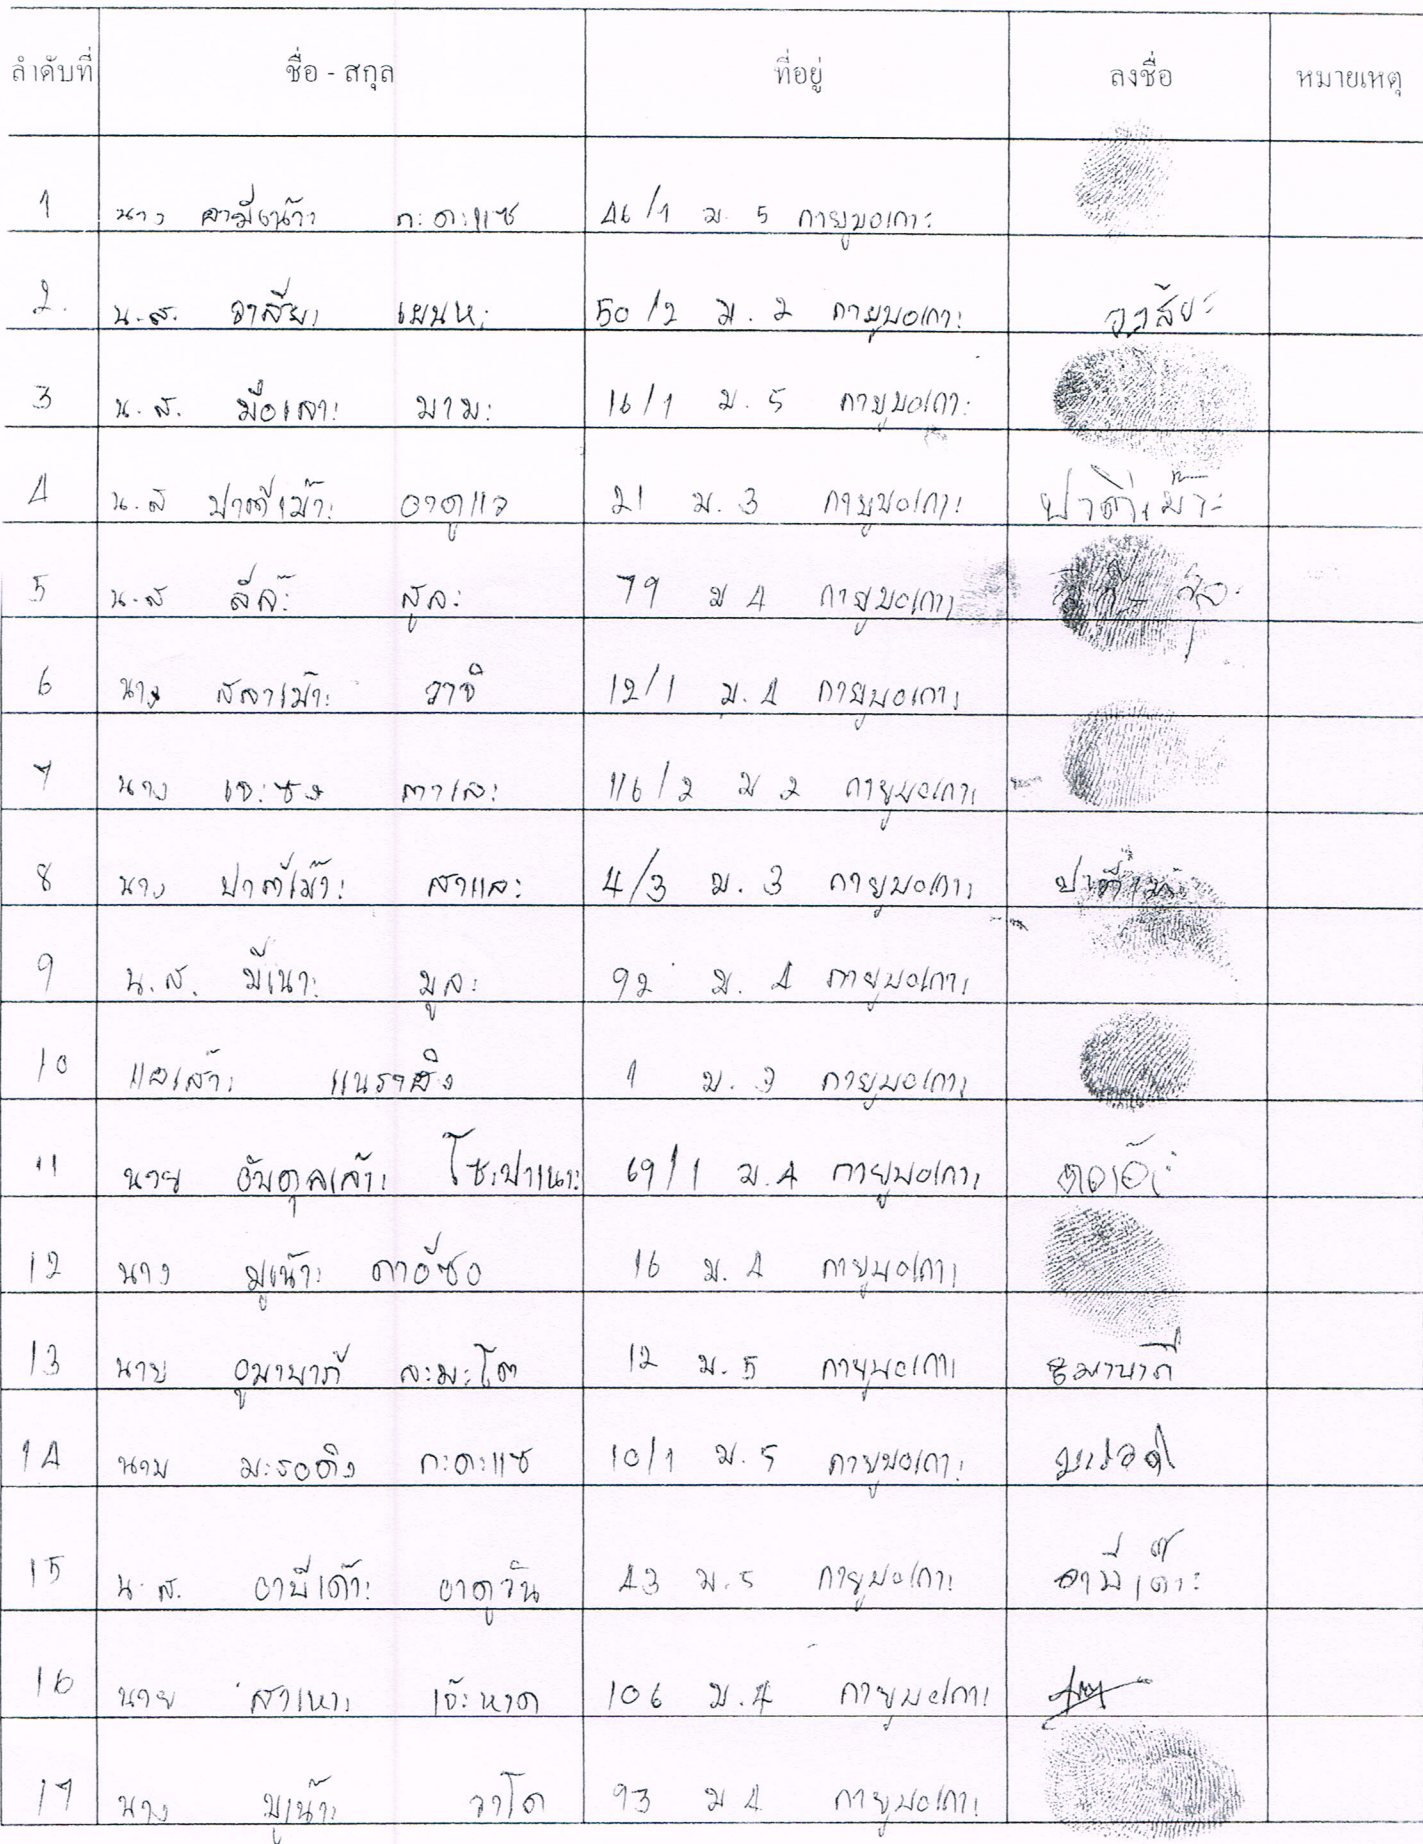 ลำดับที่ ชื่อ - สกุล ที่อยู่ ลงชื่อ หมายเหตุ
1 นาง คามีเน๊าะ กะดะแซ 46/1 ม. 5 กายูบอเกาะ
2. น.ส. วาสียะ เยนหะ 50/2 ม. 2 กายูบอเกาะ วาสียะ
3 น.ส. มือเลาะ มามะ 16/1 ม. 5 กายูบอเกาะ
4 น.ส ปาตีเม๊าะ อาดูแว 21 ม. 3 กายูบอเกาะ ปาตีเม๊าะ
5 น.ส ลีล๊ะ สูละ 79 ม 4 กายูบอเกาะ
6 นาง สลาเม๊าะ วาจิ 12/1 ม. 4 กายูบอเกาะ
7 นาง เจะซง ตาเละ 116/2 ม 2 กายูบอเกาะ
8 นาง ปาตีเม๊าะ สาและ 4/3 ม. 3 กายูบอเกาะ ปาตีเมาะ
9 น.ส. มีเนาะ มูละ 92 ม. 4 กายูบอเกาะ
10 แอเส๊าะ แนราฮิง 1 ม. 3 กายูบอเกาะ
11 นาย อับดุลเล๊าะ โซะปาเนาะ 69/1 ม.4 กายูบอเกาะ
12 นาง มูเน๊าะ ดาอีซอ 16 ม. 4 กายูบอเกาะ
13 นาย อูมาบากี ละมะโต 12 ม. 5 กายูบอเกาะ อูมาบากี
14 นาย มะรอดิง กะดะแซ 10/1 ม. 5 กายูบอเกาะ
15 น.ส. อาบีเด๊าะ อาดูวัน 43 ม. 5 กายูบอเกาะ อาบีเด๊าะ
16 นาย สาเหาะ เจ๊ะหาด 106 ม. 4 กายูบอเกาะ
17 นาง มูเน๊าะ วาโด 93 ม 4 กายูบอเกาะ